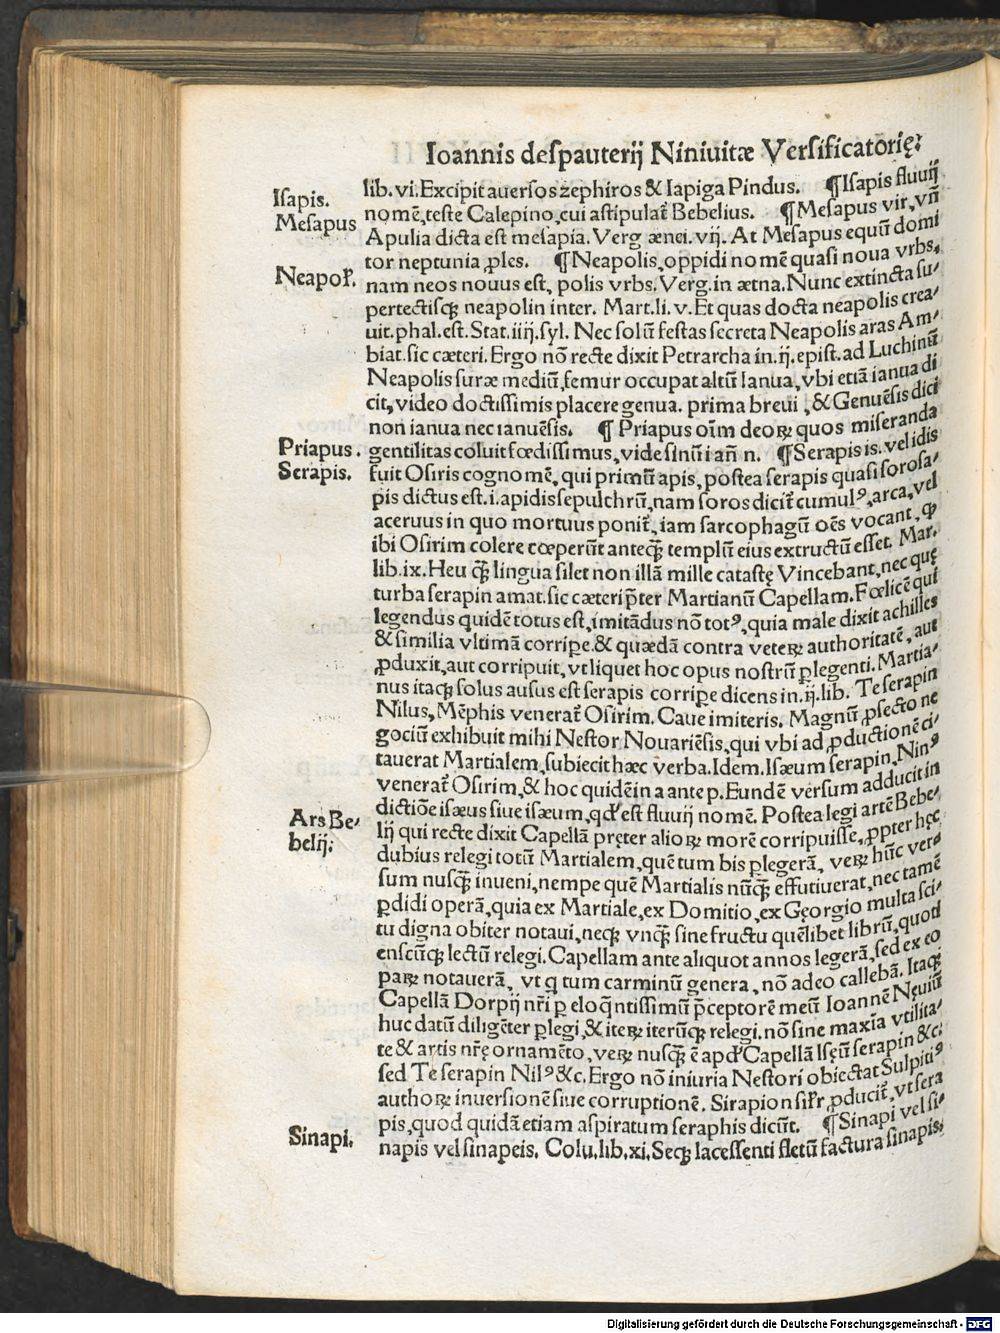 Ioannis despauterij Niniuitæ Versificatorię:
Isapis.
Mesapus
Neapol̃.
Priapus.
Serapis.
Ars Be-
belij.
Sinapi.
lib. vi. Excipit auersos zephiros & Iapiga Pindus. ¶Isapis fluuij
nomē, teste Calepino, cui astipulat᷑ Bebelius. ¶Mesapus vir, vñ
Apulia dicta est mesapia. Verg ænei. vij. At Mesapus equũ domi
tor neptunia ꝓles. ¶Neapolis, oppidi nomē quasi noua vrbs,
nam neos nouus est, polis vrbs. Verg. in ætna. Nunc extincta su-
pertectisq; neapolin inter. Mart. li. v. Et quas docta neapolis crea-
uit. phal. est. Stat. iiij. syl. Nec solũ festas secreta Neapolis aras Am-
biat. sic cæteri. Ergo nō recte dixit Petrarcha in. ij. epist. ad Luchinũ
Neapolis suræ mediũ, femur occupat altũ Ianua, vbi etiā ianua di
cit, video doctissimis placere genua. prima breui, & Genuēsis dici
non ianua nec ianuēsis. ¶ Priapus oīm deoꝝ quos miseranda
gentilitas coluit fœdissimus, vide sinũ i añ n. ¶Serapis is. vel idis
fuit Osiris cognomē, qui primũ apis, postea serapis quasi sorosa-
pis dictus est. i. apidis sepulchrũ, nam soros dicit᷑ cumulꝰ, arca, vel
aceruus in quo mortuus ponit᷑, iam sarcophagũ oēs vocant, ꝙ
ibi Osirim colere cœperũt anteq̃ templũ eius extructũ esset. Mar.
lib. ix. Heu q̃ lingua silet non illā mille catastę Vincebant, nec quę
turba serapin amat. sic cæteri p̃ter Martianũ Capellam. Fœlicē qui
legendus quidē totus est, imitādus nō totꝰ, quia male dixit achilles
& similia vltimā corripe. & quædā contra veteꝝ authoritatē, aut
ꝓduxit, aut corripuit, vt liquet hoc opus nostrũ ꝑlegenti. Martia-
nus itaq; solus ausus est serapis corripe dicens in. ij. lib. Te serapin
Nilus, Mēphis venerat᷑ Osirim. Caue imiteris. Magnũ ꝓfecto ne
gociũ exhibuit mihi Nestor Nouariēsis, qui vbi ad ꝓductionē ci-
tauerat Martialem, subiecit hæc verba. Idem. Isæum serapin, Ninꝰ
venerat᷑ Osirim, & hoc quidē in a ante p. Eundē versum adducit in
dictiōe isæus siue isæum, qd' est fluuij nomē. Postea legi artē Bebe-
lij qui recte dixit Capellā pręter alioꝝ morē corripuisse, ꝓpter hęc
dubius relegi totũ Martialem, quē tum bis ꝑlegerā, veꝝ hũc ver-
sum nusq̃ inueni, nempe quē Martialis nũq̃ effutiuerat, nec tamē
ꝑdidi operā, quia ex Martiale, ex Domitio, ex Gęorgio multa sci-
tu digna obiter notaui, neq; vnq̃ sine fructu quēlibet librũ, quod
enscũq; lectũ relegi. Capellam ante aliquot annos legerā, sed ex eo
paꝝ notauerā, vt q tum carminũ genera, nō adeo callebā. Itaq;
Capellā Dorpij nr̃i ꝑ eloq̃ntissimũ p̃ceptorē meũ Ioannē Nęuiũ
huc datũ diligēter ꝑlegi, & iteꝝ iterũq; relegi. nō sine maxīa vtilita-
te & artis nr̃ę ornamēto, veꝝ nusq̃ ē apd' Capellā Isęũ serapin &c;
sed Te serapin Nilꝰ &c. Ergo nō iniuria Nestori obiectat Sulpitiꝰ
authoꝝ inuersionē siue corruptionē. Sirapion sil̃r ꝓducit᷑, vt sera
pis, quod quidā etiam aspiratum seraphis dicũt. ¶Sinapi vel si-
napis vel sinapeis. Colu. lib. xi. Seq; lacessenti fletũ factura sinapis.
Digitalisierung gefördert durch die Deutsche Forschungsgemeinschaft - DFG